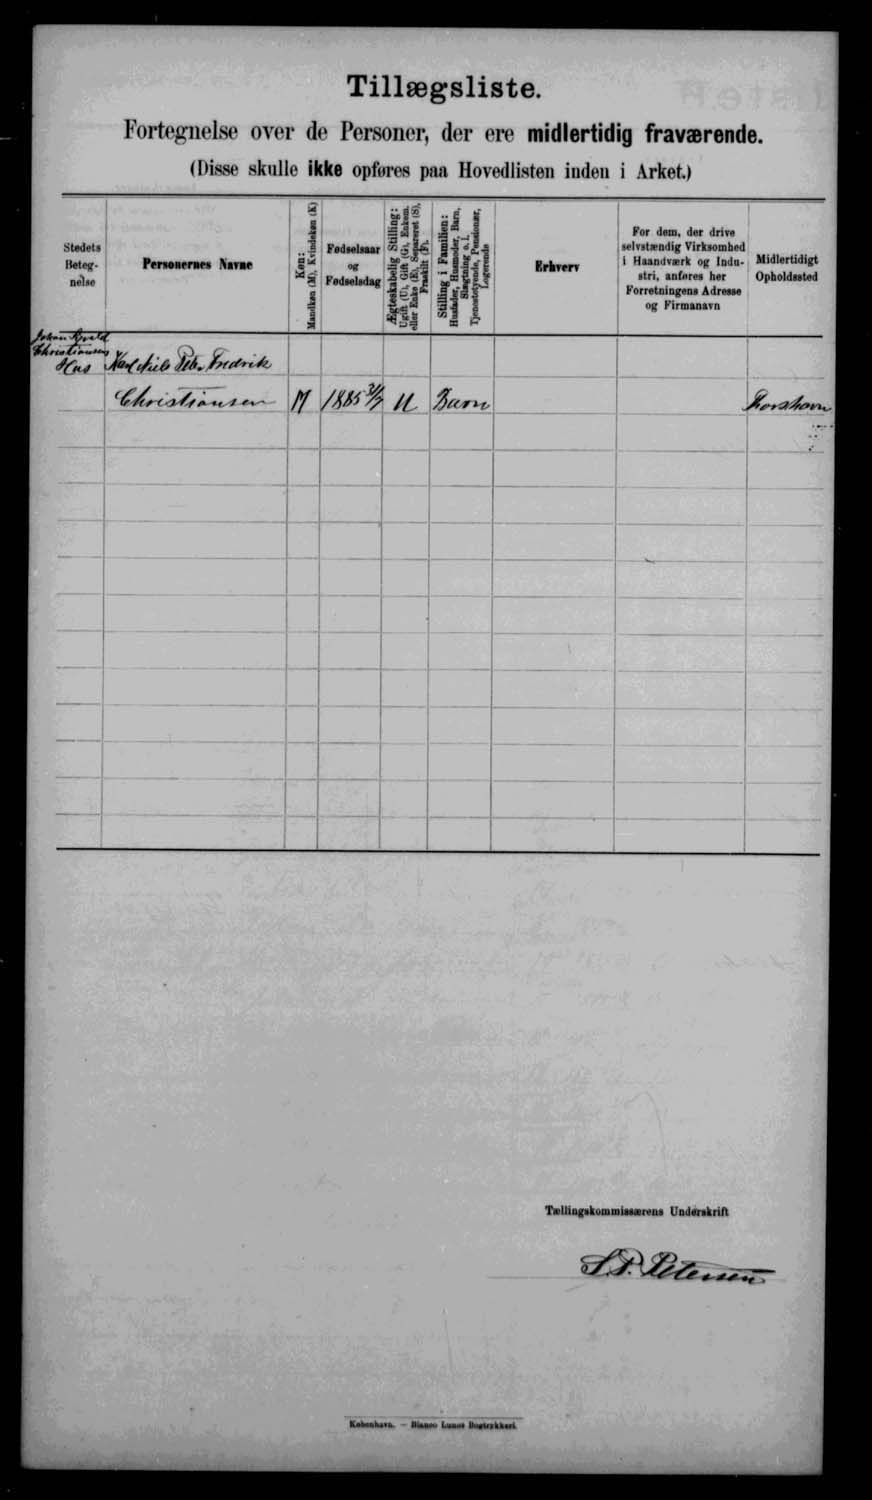 Tillægsliste.
Fortegnelse over de Personer, der ere midlertidig fraværende.
(Disse skulle ikke opføres paa Hovedlisten inden i Arket.)
Stedets
Beteg-
nelse
Personernes Navne
Køn:
Mandkøn (M), Kvindekøn (K)
Fødselsaar
og
Fødselsdag
Ægteskabelig Stilling:
Ugift (U), Gift (G), Enkem.
eller Enke (E), Separeret (S),
Fraskilt (F).
Stilling i Familien:
Husfader, Husmoder, Barn,
Slægtning o. l.
Tjenestetyende, Pensionær,
Logerende
Erhverv
For dem, der drive
selvstændig Virksomhed
i Haandværk og Indu-
stri, anføres her
Forretningens Adresse
og Firmanavn
Midlertidigt
Opholdssted
Johan
Christiansens
Hus
Karl Niels Peter Fredrik
Christiansen M 1885 U Barn Thorshavn
Tællingskommissærens Underskrift
S. P. Petersen
København. — Bianco Lunos Bogtrykkeri.